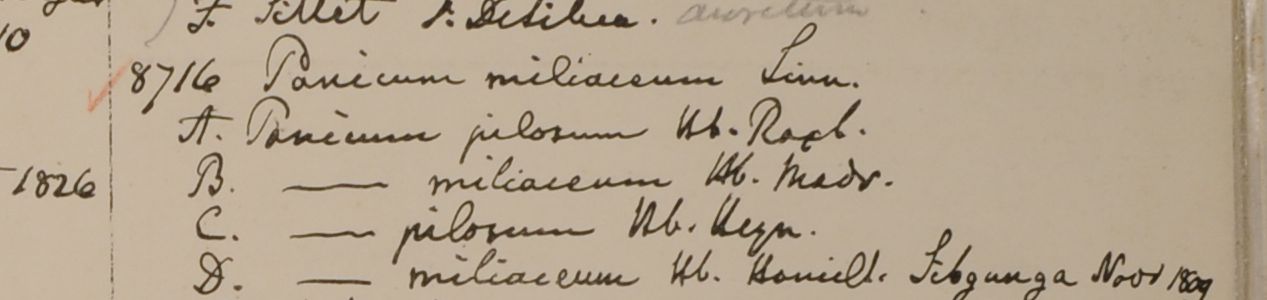 F. Sillet
10
8716 Panicum miliaceum Linn.
A. Panicum pilosum Hb. Roxb.
1826 B. — miliaceum Hb. Madr.
C. — pilosum Hb. Heyn.
D. — miliaceum Hb. Hamilt. Novr 1809